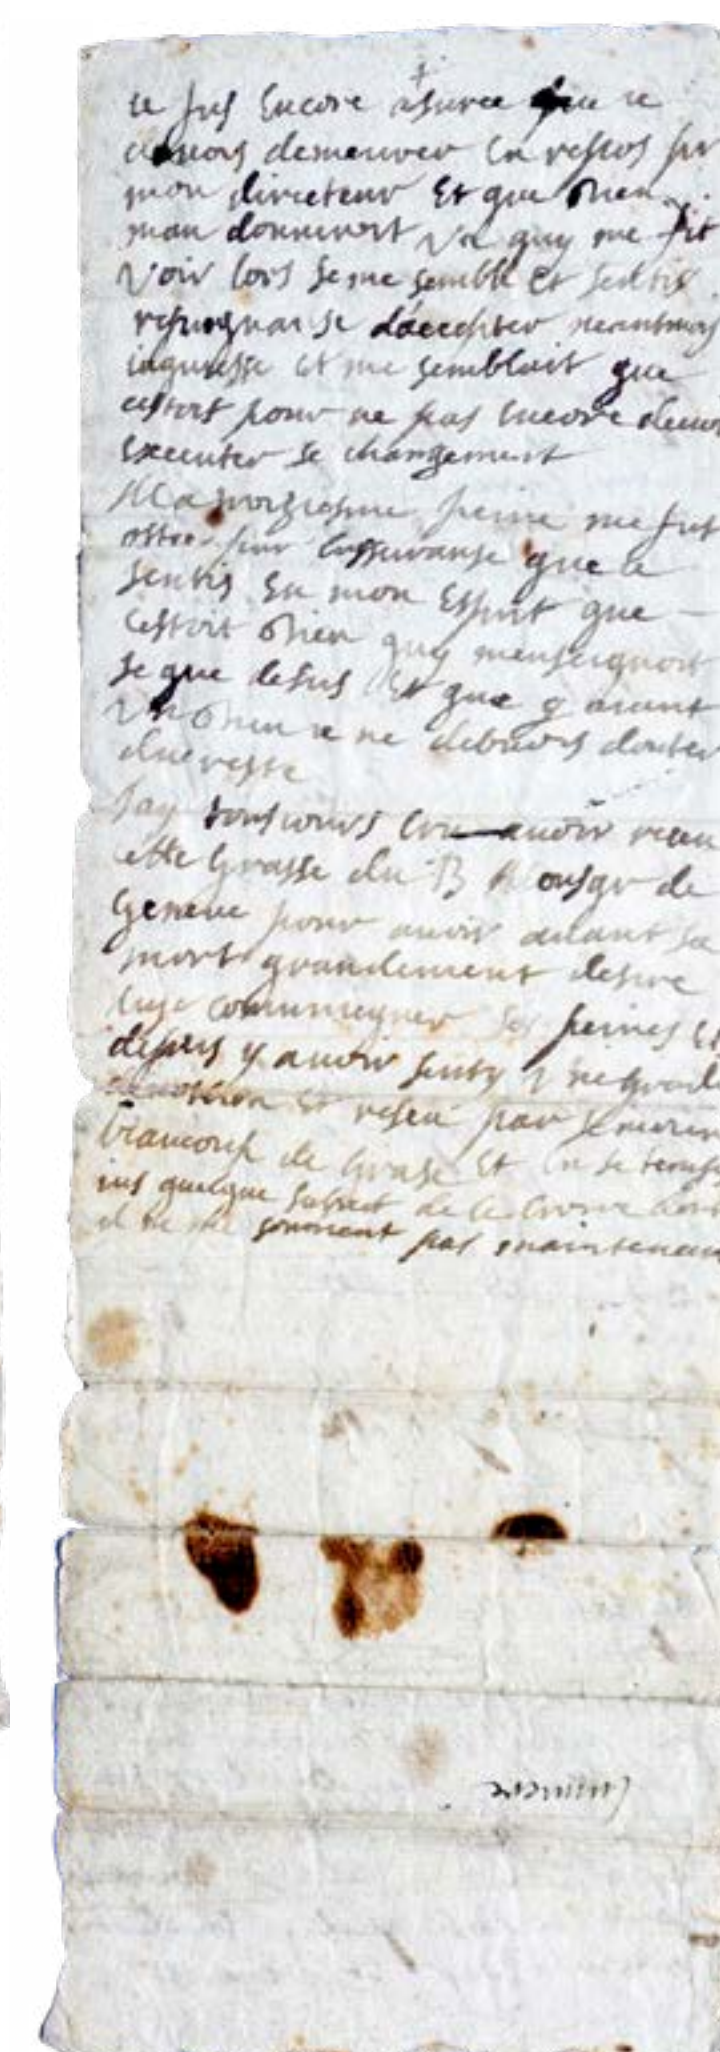 ie fus Encore asuree que ie
devois demeurer En repos pr
mon directeur Et que Dieu
man donneroit Vn quy me fit
Voir lors se me semble et sentis
repugnanse dacepter neantmoi
iaquiesse et me sembloit que
cestoit pour ne pas encore devoi
Executer se changement
Ma troiziesme peine me fut
ostee par lassuranse que ie
sentis En mon Esprit que
Cestoit Dieu quy menseignoit
se que desus Et que y aiant
Vn Dieu ie ne debvois douter
du reste
Jay tousiours Cru avoir receu
cette Grasse du B Monsgr de
Geneve pour avoir avant sa
mort grandement desire
luy communiquer ses peines Et
depuis y avoir senty Vne grande
devotion Et reseu par se moien
beaucoup de Grase Et En se temps
ius quelque subiect de le Croire dont
il ne me souvient pas maintenan
Lumiere